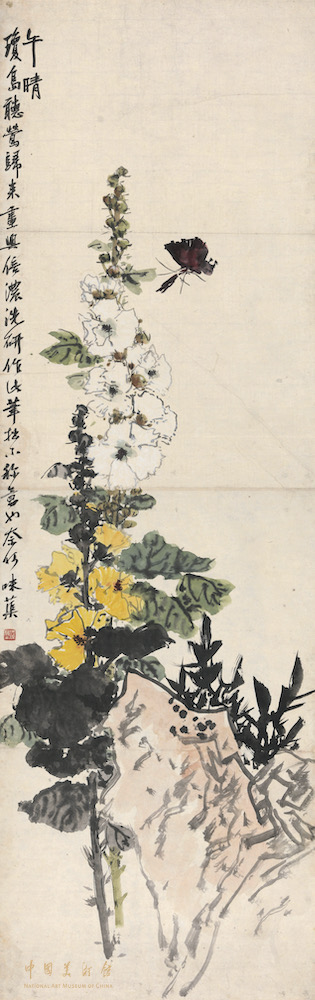 午晴
瓊島聽鶯歸來畫興倍濃洗研作此筆拙不称意如奈何 味蕖
中国美术馆
NATIONAL ART MUSEUM OF CHINA